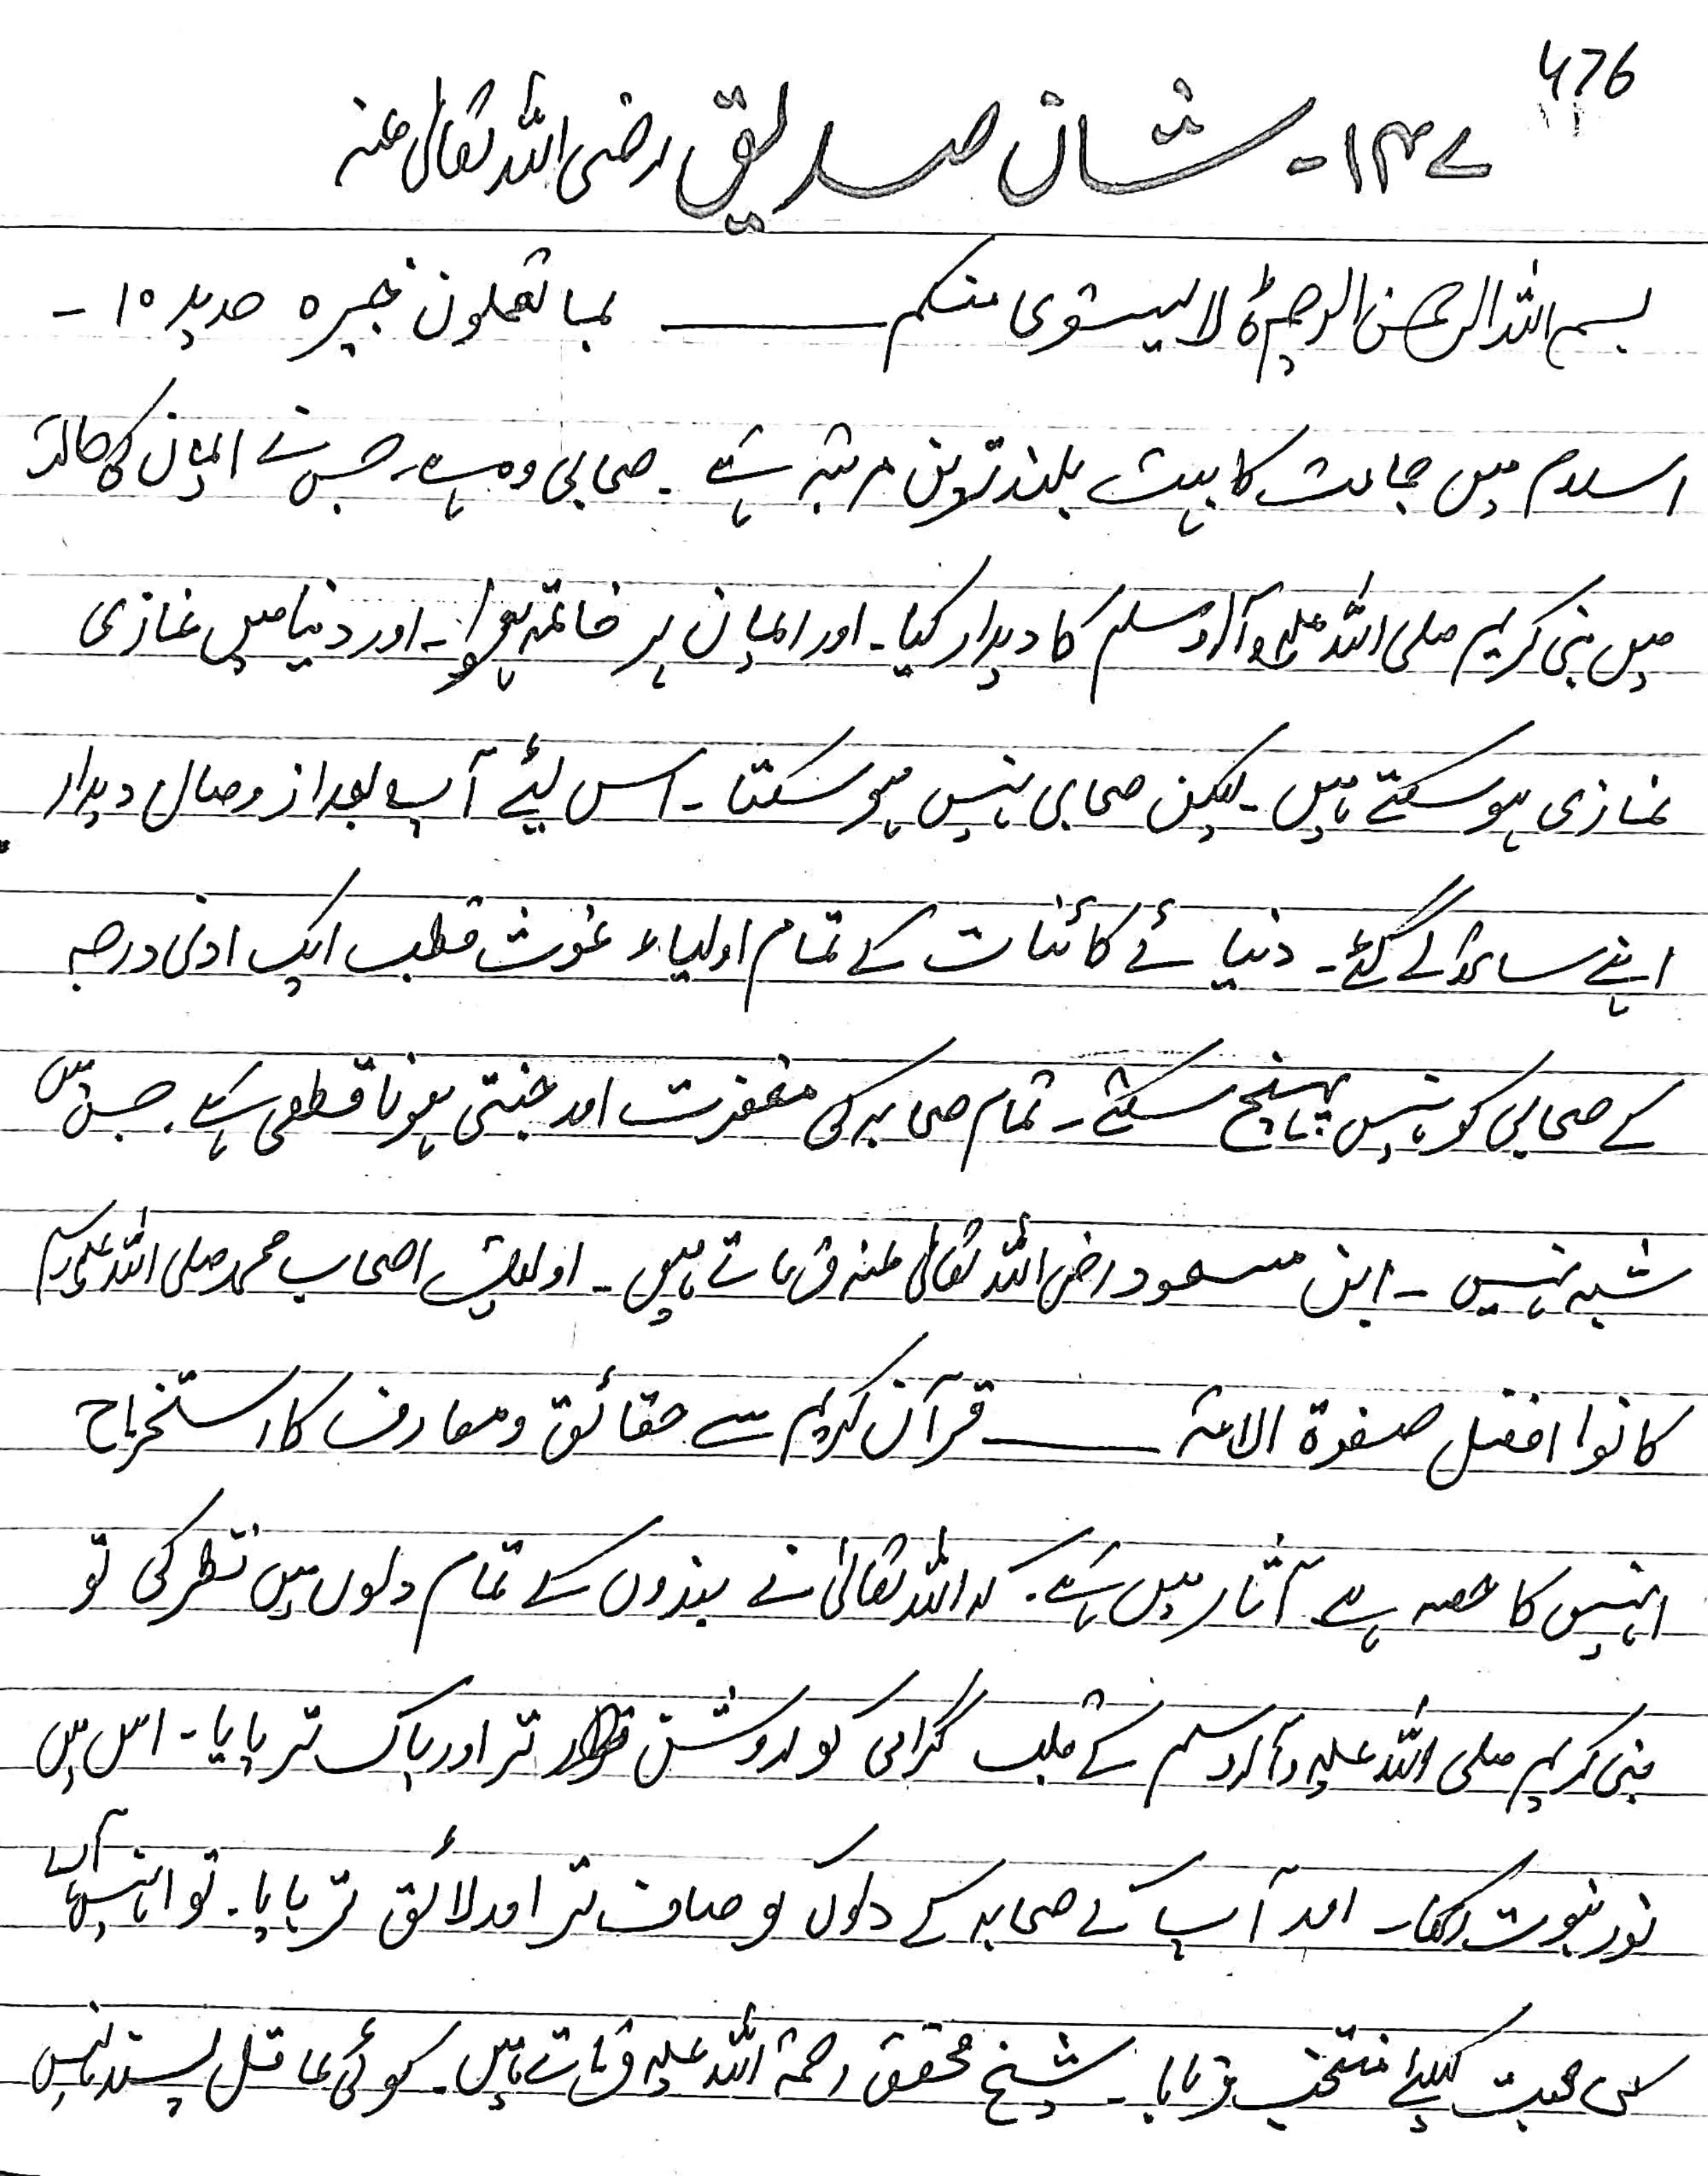 476
۱۴۷- شان صدیق رضی اللہ تعالیٰ عنہ
بسم اللہ الرحمٰن الرحیم ہ لا یستوی منکم ــــــ بما تعملون خبیرہ حدید ۱۰ -
اسلام میں جماعت کا بہت بلند ترین مرتبہ ہے ۔ صحابی وہ ہے۔ جس نے ایمان کی حالت
میں نبی کریم صلی اللہ علیہ وآلہ وسلم کا دیدار کیا۔ اور ایمان پر خاتمہ ہوا۔ اور دنیا میں غازی
نمازی ہو سکتے ہیں ۔ لیکن صحابی نہیں ہو سکتا ۔ اس لیئے آپ بعد از وصال دیدار
اپنے ساتھ لے گئے۔ دنیائے کائنات کے تمام اولیاء غوث قطب ایک ادنی درجہ
کے صحابی کو نہیں پہنچ سکتے ۔ تمام صحابہ کی مغفرت اور جنتی ہونا قطعی ہے۔ جس میں
شبہ نہیں ۔ ابن مسعود رضی اللہ تعالیٰ عنہ فرماتے ہیں ۔ اولیئک اصحاب محمد صلی اللہ علیہ وسلم
کانوا افضل صفوۃ الامتہ ــــــ قرآن کریم سے حقائق و معارف کا استخراج
انہیں کا حصہ ہے۔ آثار میں ہے۔ کہ اللہ تعالیٰ نے بندوں کے تمام دلوں میں نظر کی تو
نبی کریم صلی اللہ علیہ وآلہ وسلم کے قلب گرامی کو روشن تر اور پاک تر پایا۔ اس میں
نور نبوت رکھا۔ اور آپ کے صحابہ کے دلوں کو صاف تر اور لائق تر پایا۔ تو انہیں آپ
کی صحبت کیلئے منتخب فرمایا ۔ شیخ محقق رحمۃ اللہ علیہ فرماتے ہیں ۔ کوئی عاقل پسند نہیں